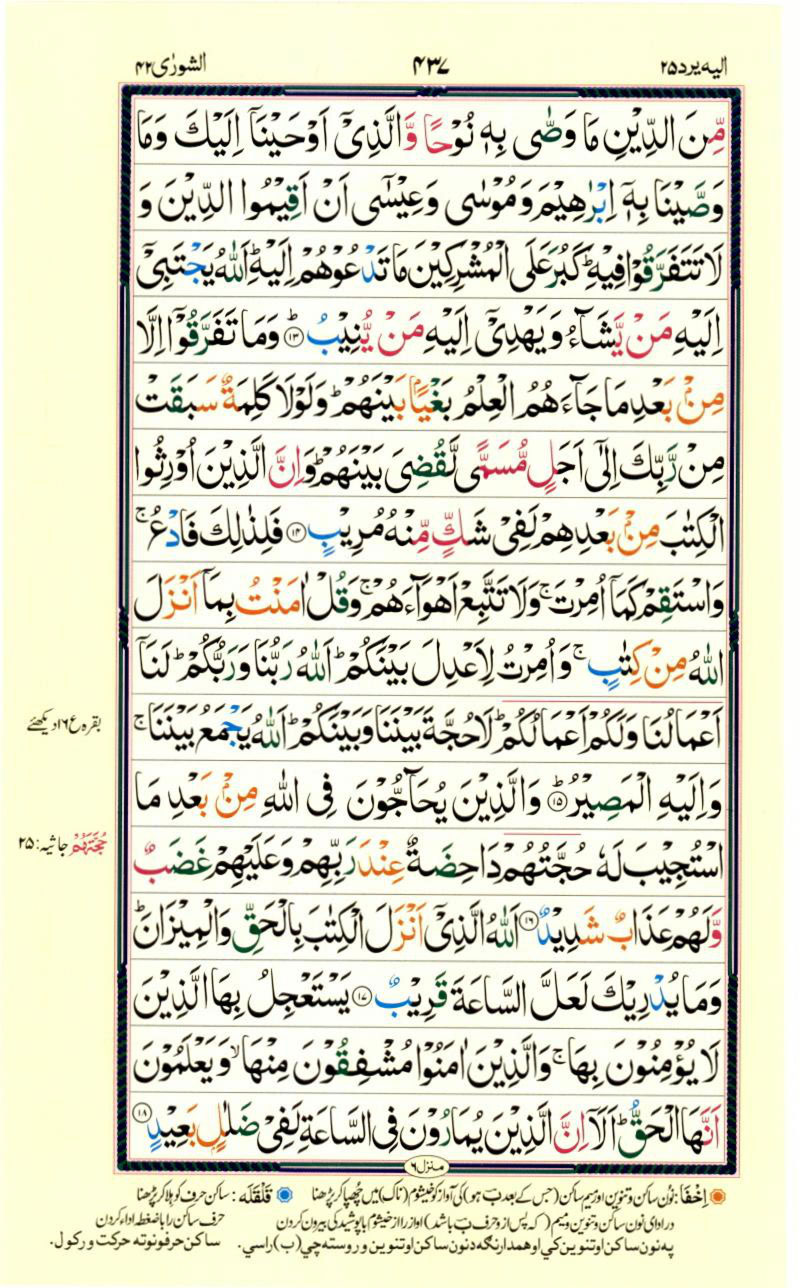 الیه یرد ۲۵
۴۳۷
الشورٰی ۴۲
مِّنَ الدِّيْنِ مَا وَصّٰى بِهٖ نُوْحًا وَّالَّذِيْۤ اَوْحَيْنَاۤ اِلَيْكَ وَمَا
وَصَّيْنَا بِهٖۤ اِبْرٰهِيْمَ وَمُوْسٰى وَعِيْسٰۤى اَنْ اَقِيْمُوا الدِّيْنَ وَ
لَا تَتَفَرَّقُوْا فِيْهِؕ كَبُرَ عَلَى الْمُشْرِكِيْنَ مَا تَدْعُوْهُمْ اِلَيْهِؕ اَللّٰهُ يَجْتَبِيْۤ
اِلَيْهِ مَنْ يَّشَآءُ وَيَهْدِيْۤ اِلَيْهِ مَنْ يُّنِيْبُؕ ۱۳ وَمَا تَفَرَّقُوْۤا اِلَّا
مِنْۢ بَعْدِ مَا جَآءَهُمُ الْعِلْمُ بَغْيًۢا بَيْنَهُمْؕ وَلَوْلَا كَلِمَةٌ سَبَقَتْ
مِنْ رَّبِّكَ اِلٰۤى اَجَلٍ مُّسَمًّى لَّقُضِيَ بَيْنَهُمْؕ وَاِنَّ الَّذِيْنَ اُوْرِثُوا
الْكِتٰبَ مِنْۢ بَعْدِهِمْ لَفِيْ شَكٍّ مِّنْهُ مُرِيْبٍ ۱۴ فَلِذٰلِكَ فَادْعُۚ
وَاسْتَقِمْ كَمَاۤ اُمِرْتَۚ وَلَا تَتَّبِعْ اَهْوَآءَهُمْۚ وَقُلْ اٰمَنْتُ بِمَاۤ اَنْزَلَ
اللّٰهُ مِنْ كِتٰبٍۚ وَاُمِرْتُ لِاَعْدِلَ بَيْنَكُمْؕ اَللّٰهُ رَبُّنَا وَرَبُّكُمْؕ لَنَاۤ
اَعْمَالُنَا وَلَكُمْ اَعْمَالُكُمْؕ لَا حُجَّةَ بَيْنَنَا وَبَيْنَكُمْؕ اَللّٰهُ يَجْمَعُ بَيْنَنَاۚ
بقره ع ۱۶ دیکھئے
وَاِلَيْهِ الْمَصِيْرُؕ ۱۵ وَالَّذِيْنَ يُحَآجُّوْنَ فِي اللّٰهِ مِنْۢ بَعْدِ مَا
اسْتُجِيْبَ لَهٗ حُجَّتُهُمْ دَاحِضَةٌ عِنْدَ رَبِّهِمْ وَعَلَيْهِمْ غَضَبٌ
حُجَّتَهُمْ جاثیہ: ۲۵
وَّلَهُمْ عَذَابٌ شَدِيْدٌ ۱۶ اَللّٰهُ الَّذِيْۤ اَنْزَلَ الْكِتٰبَ بِالْحَقِّ وَالْمِيْزَانَؕ
وَمَا يُدْرِيْكَ لَعَلَّ السَّاعَةَ قَرِيْبٌ ۱۷ يَسْتَعْجِلُ بِهَا الَّذِيْنَ
لَا يُؤْمِنُوْنَ بِهَاۚ وَالَّذِيْنَ اٰمَنُوْا مُشْفِقُوْنَ مِنْهَاۙ وَيَعْلَمُوْنَ
اَنَّهَا الْحَقُّؕ اَلَاۤ اِنَّ الَّذِيْنَ يُمَارُوْنَ فِي السَّاعَةِ لَفِيْ ضَلٰلٍۭ بَعِيْدٍ ۱۸
منزل ۶
اِخْفَا: نُون ساکن و تنوین اور میم ساکن (جس کے بعد بَ ہو) کی آواز کو خیشوم (ناک) میں چُھپا کر پڑھنا قَلْقَلَه: ساکن حرف کو ہلا کر پڑھنا
در ادای نون ساکن و تنوین و میم (که پس از و حرف بَ باشد) آواز را از خیشوم با پوشیدگی بیرون کردن حرف ساکن را با ضغطه اداء کردن
په نون ساکن او تنوین کي او همدارنګه د نون ساکن او تنوین و روسته چي (ب) راسي. ساکن حرفونو ته حرکت ورکول.